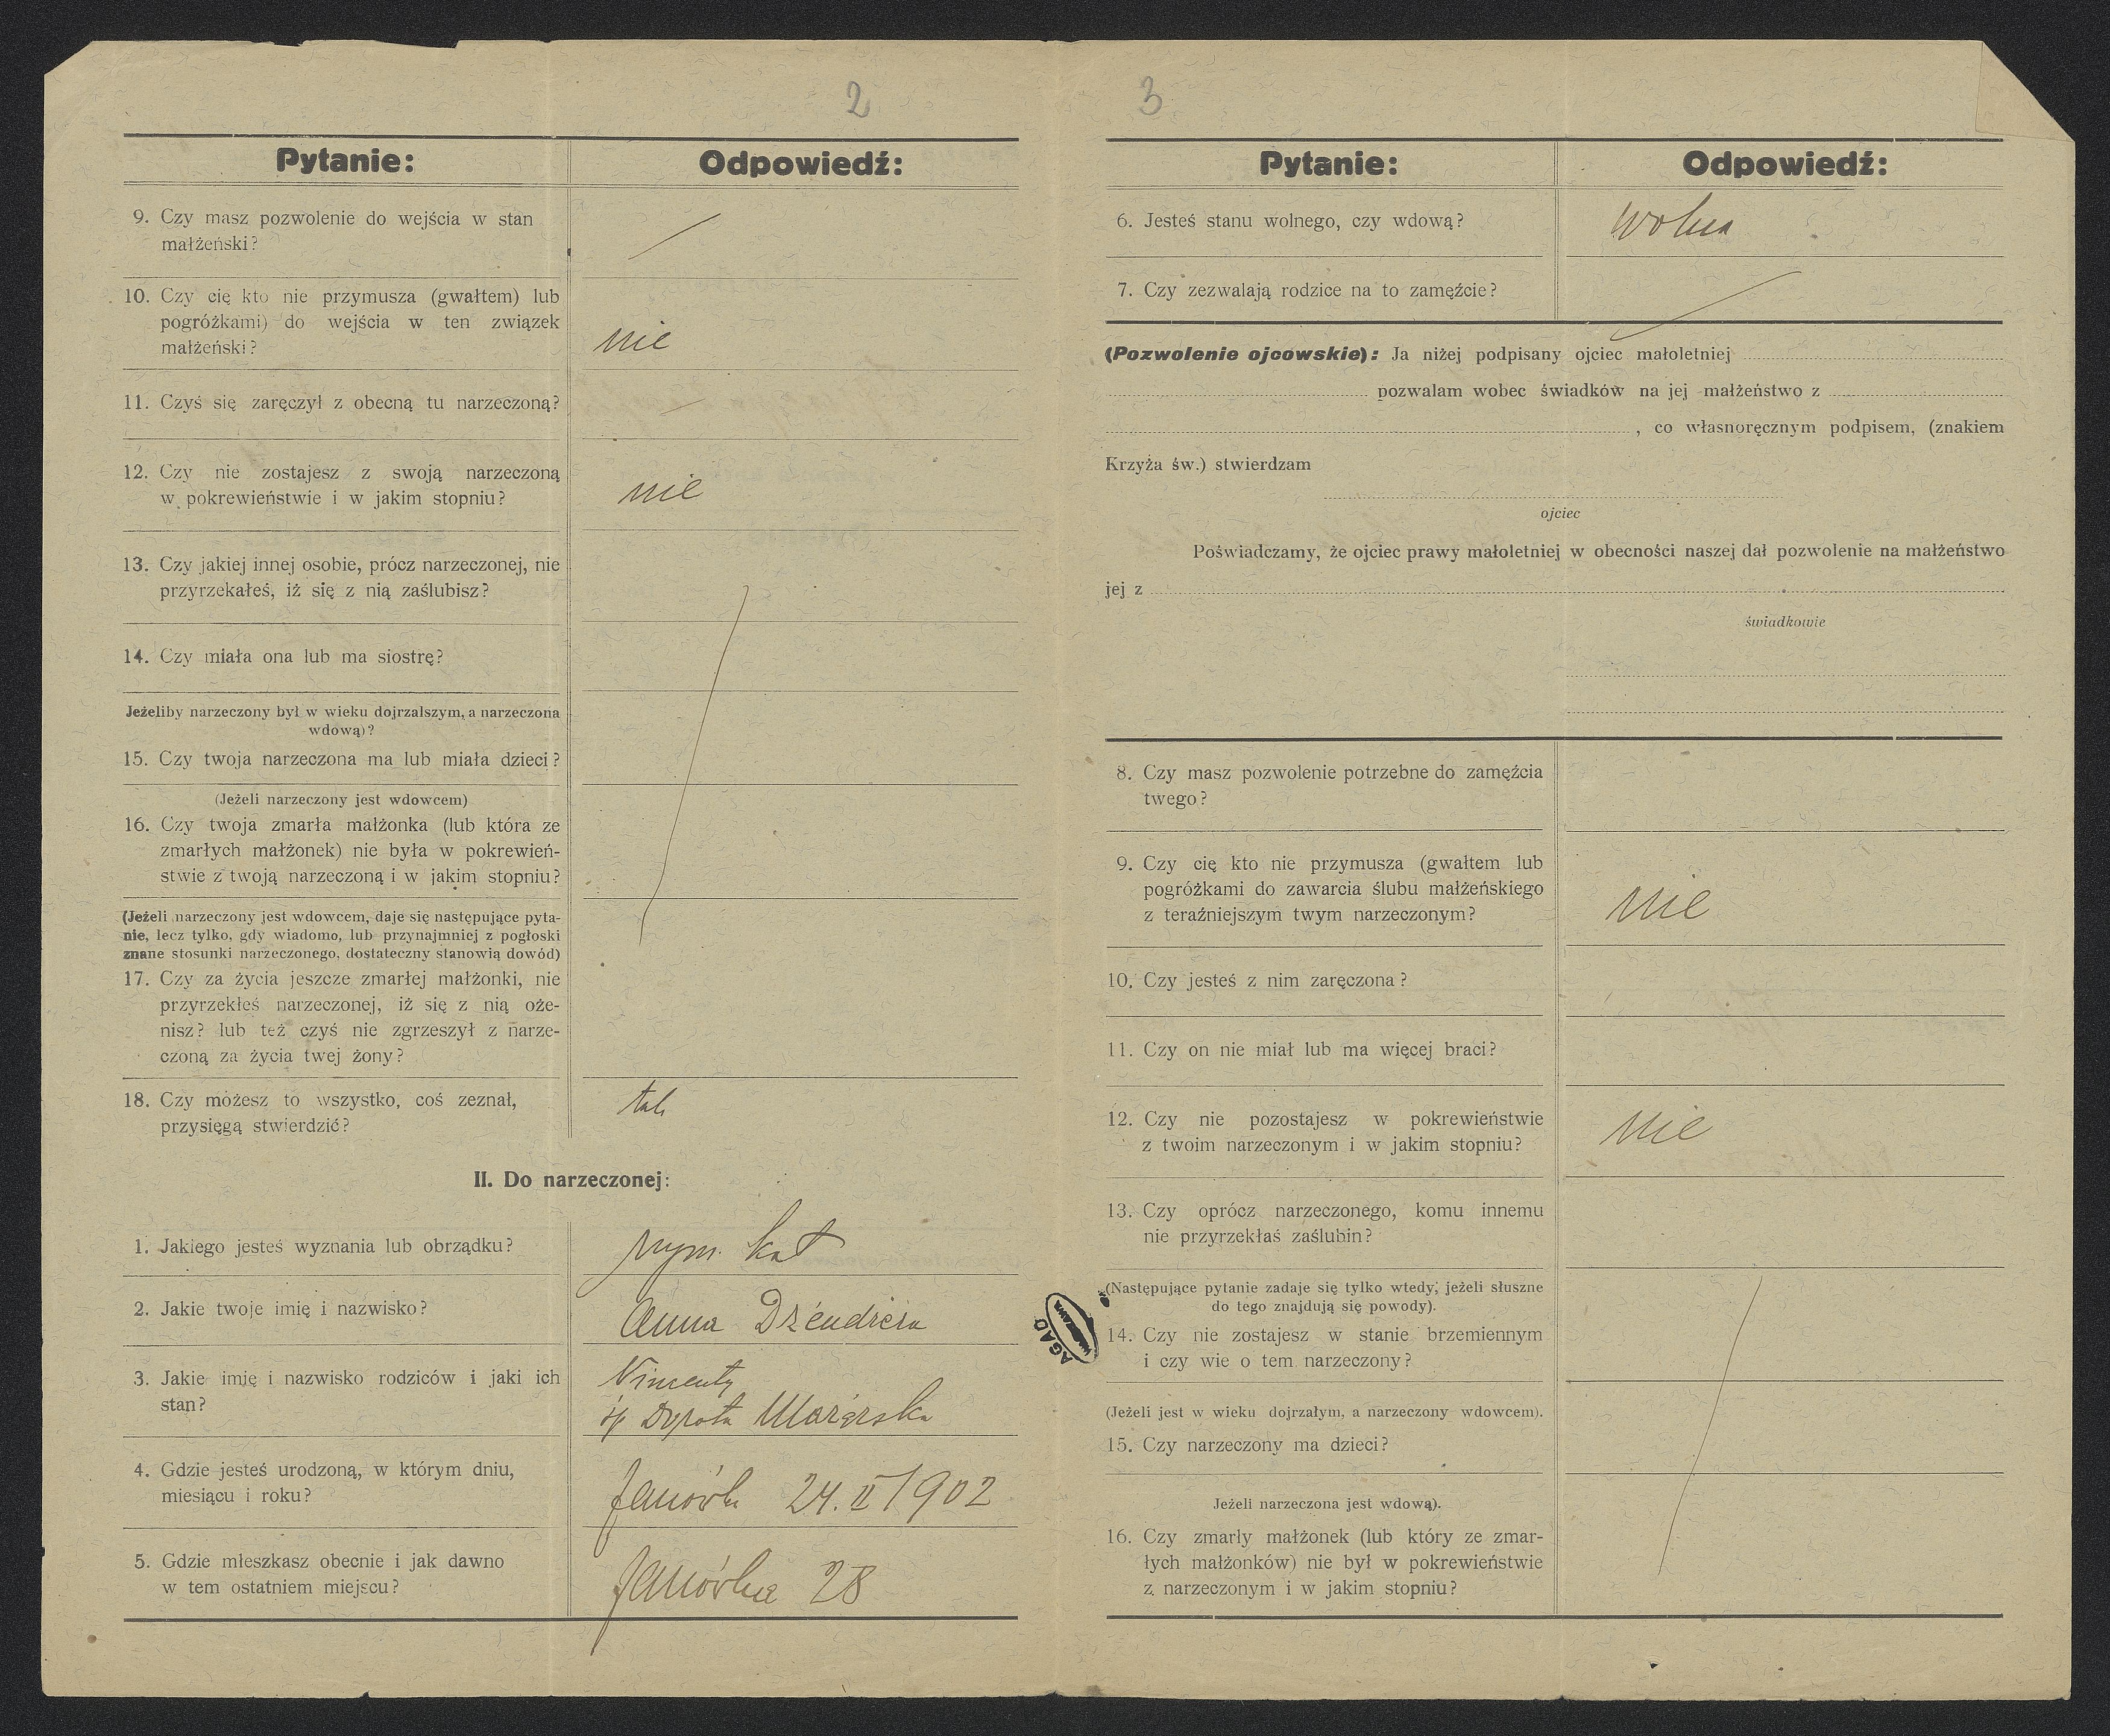 2
Pytanie:
Odpowiedź:
9. Czy masz pozwolenie do wejścia w stan
małżeński?
10. Czy cię kto nie przymusza (gwałtem) lub
pogróżkami) do wejścia w ten związek
małżeński?
nie
11. Czyś się zaręczył z obecną tu narzeczoną?
12. Czy nie zostajesz z swoją narzeczoną
w pokrewieństwie i w jakim stopniu?
nie
13. Czy jakiej innej osobie, prócz narzeczonej, nie
przyrzekałeś, iż się z nią zaślubisz?
14. Czy miała ona lub ma siostrę?
Jeżeliby narzeczony był w wieku dojrzalszym, a narzeczona
wdową)?
15. Czy twoja narzeczona ma lub miała dzieci?
(Jeżeli narzeczony jest wdowcem)
16. Czy twoja zmarła małżonka (lub która ze
zmarłych małżonek) nie była w pokrewień-
stwie z twoją narzeczoną i w jakim stopniu?
(Jeżeli narzeczony jest wdowcem, daje się następujące pyta-
nie, lecz tylko, gdy wiadomo, lub przynajmniej z pogłoski
znane stosunki narzeczonego, dostateczny stanowią dowód)
17. Czy za życia jeszcze zmarłej małżonki, nie
przyrzekłeś narzeczonej, iż się z nią oże-
nisz? lub też czyś nie zgrzeszył z narze-
czoną za życia twej żony?
18. Czy możesz to wszystko, coś zeznał,
przysięgą stwierdzić?
tak
II. Do narzeczonej:
1. Jakiego jesteś wyznania lub obrządku?
rzym. kat
2. Jakie twoje imię i nazwisko?
Anna Dżendżera
3. Jakie imię i nazwisko rodziców i jaki ich
stan?
Vincenty
Dorota
4. Gdzie jesteś urodzoną, w którym dniu,
miesiącu i roku?
Janówka 24. II 1902
5. Gdzie mieszkasz obecnie i jak dawno
w tem ostatniem miejscu?
Janówka 28
3
Pytanie:
Odpowiedź:
6. Jesteś stanu wolnego, czy wdową?
wolna
7. Czy zezwalają rodzice na to zamęźcie?
(Pozwolenie ojcowskie): Ja niżej podpisany ojciec małoletniej
pozwalam wobec świadków na jej małżeństwo z
, co własnoręcznym podpisem, (znakiem
Krzyża św.) stwierdzam
ojciec
Poświadczamy, że ojciec prawy małoletniej w obecności naszej dał pozwolenie na małżeństwo
jej z
świadkowie
8. Czy masz pozwolenie potrzebne do zamęźcia
twego?
9. Czy cię kto nie przymusza (gwałtem lub
pogróżkami do zawarcia ślubu małżeńskiego
z teraźniejszym twym narzeczonym?
nie
10. Czy jesteś z nim zaręczona?
11. Czy on nie miał lub ma więcej braci?
12. Czy nie pozostajesz w pokrewieństwie
z twoim narzeczonym i w jakim stopniu?
nie
13. Czy oprócz narzeczonego, komu innemu
nie przyrzekłaś zaślubin?
(Następujące pytanie zadaje się tylko wtedy, jeżeli słuszne
do tego znajdują się powody).
14. Czy nie zostajesz w stanie brzemiennym
i czy wie o tem narzeczony?
(Jeżeli jest w wieku dojrzałym, a narzeczony wdowcem).
15. Czy narzeczony ma dzieci?
Jeżeli narzeczona jest wdową).
16. Czy zmarły małżonek (lub który ze zmar-
łych małżonków) nie był w pokrewieństwie
z narzeczonym i w jakim stopniu?
AGAD
WARSZAWA